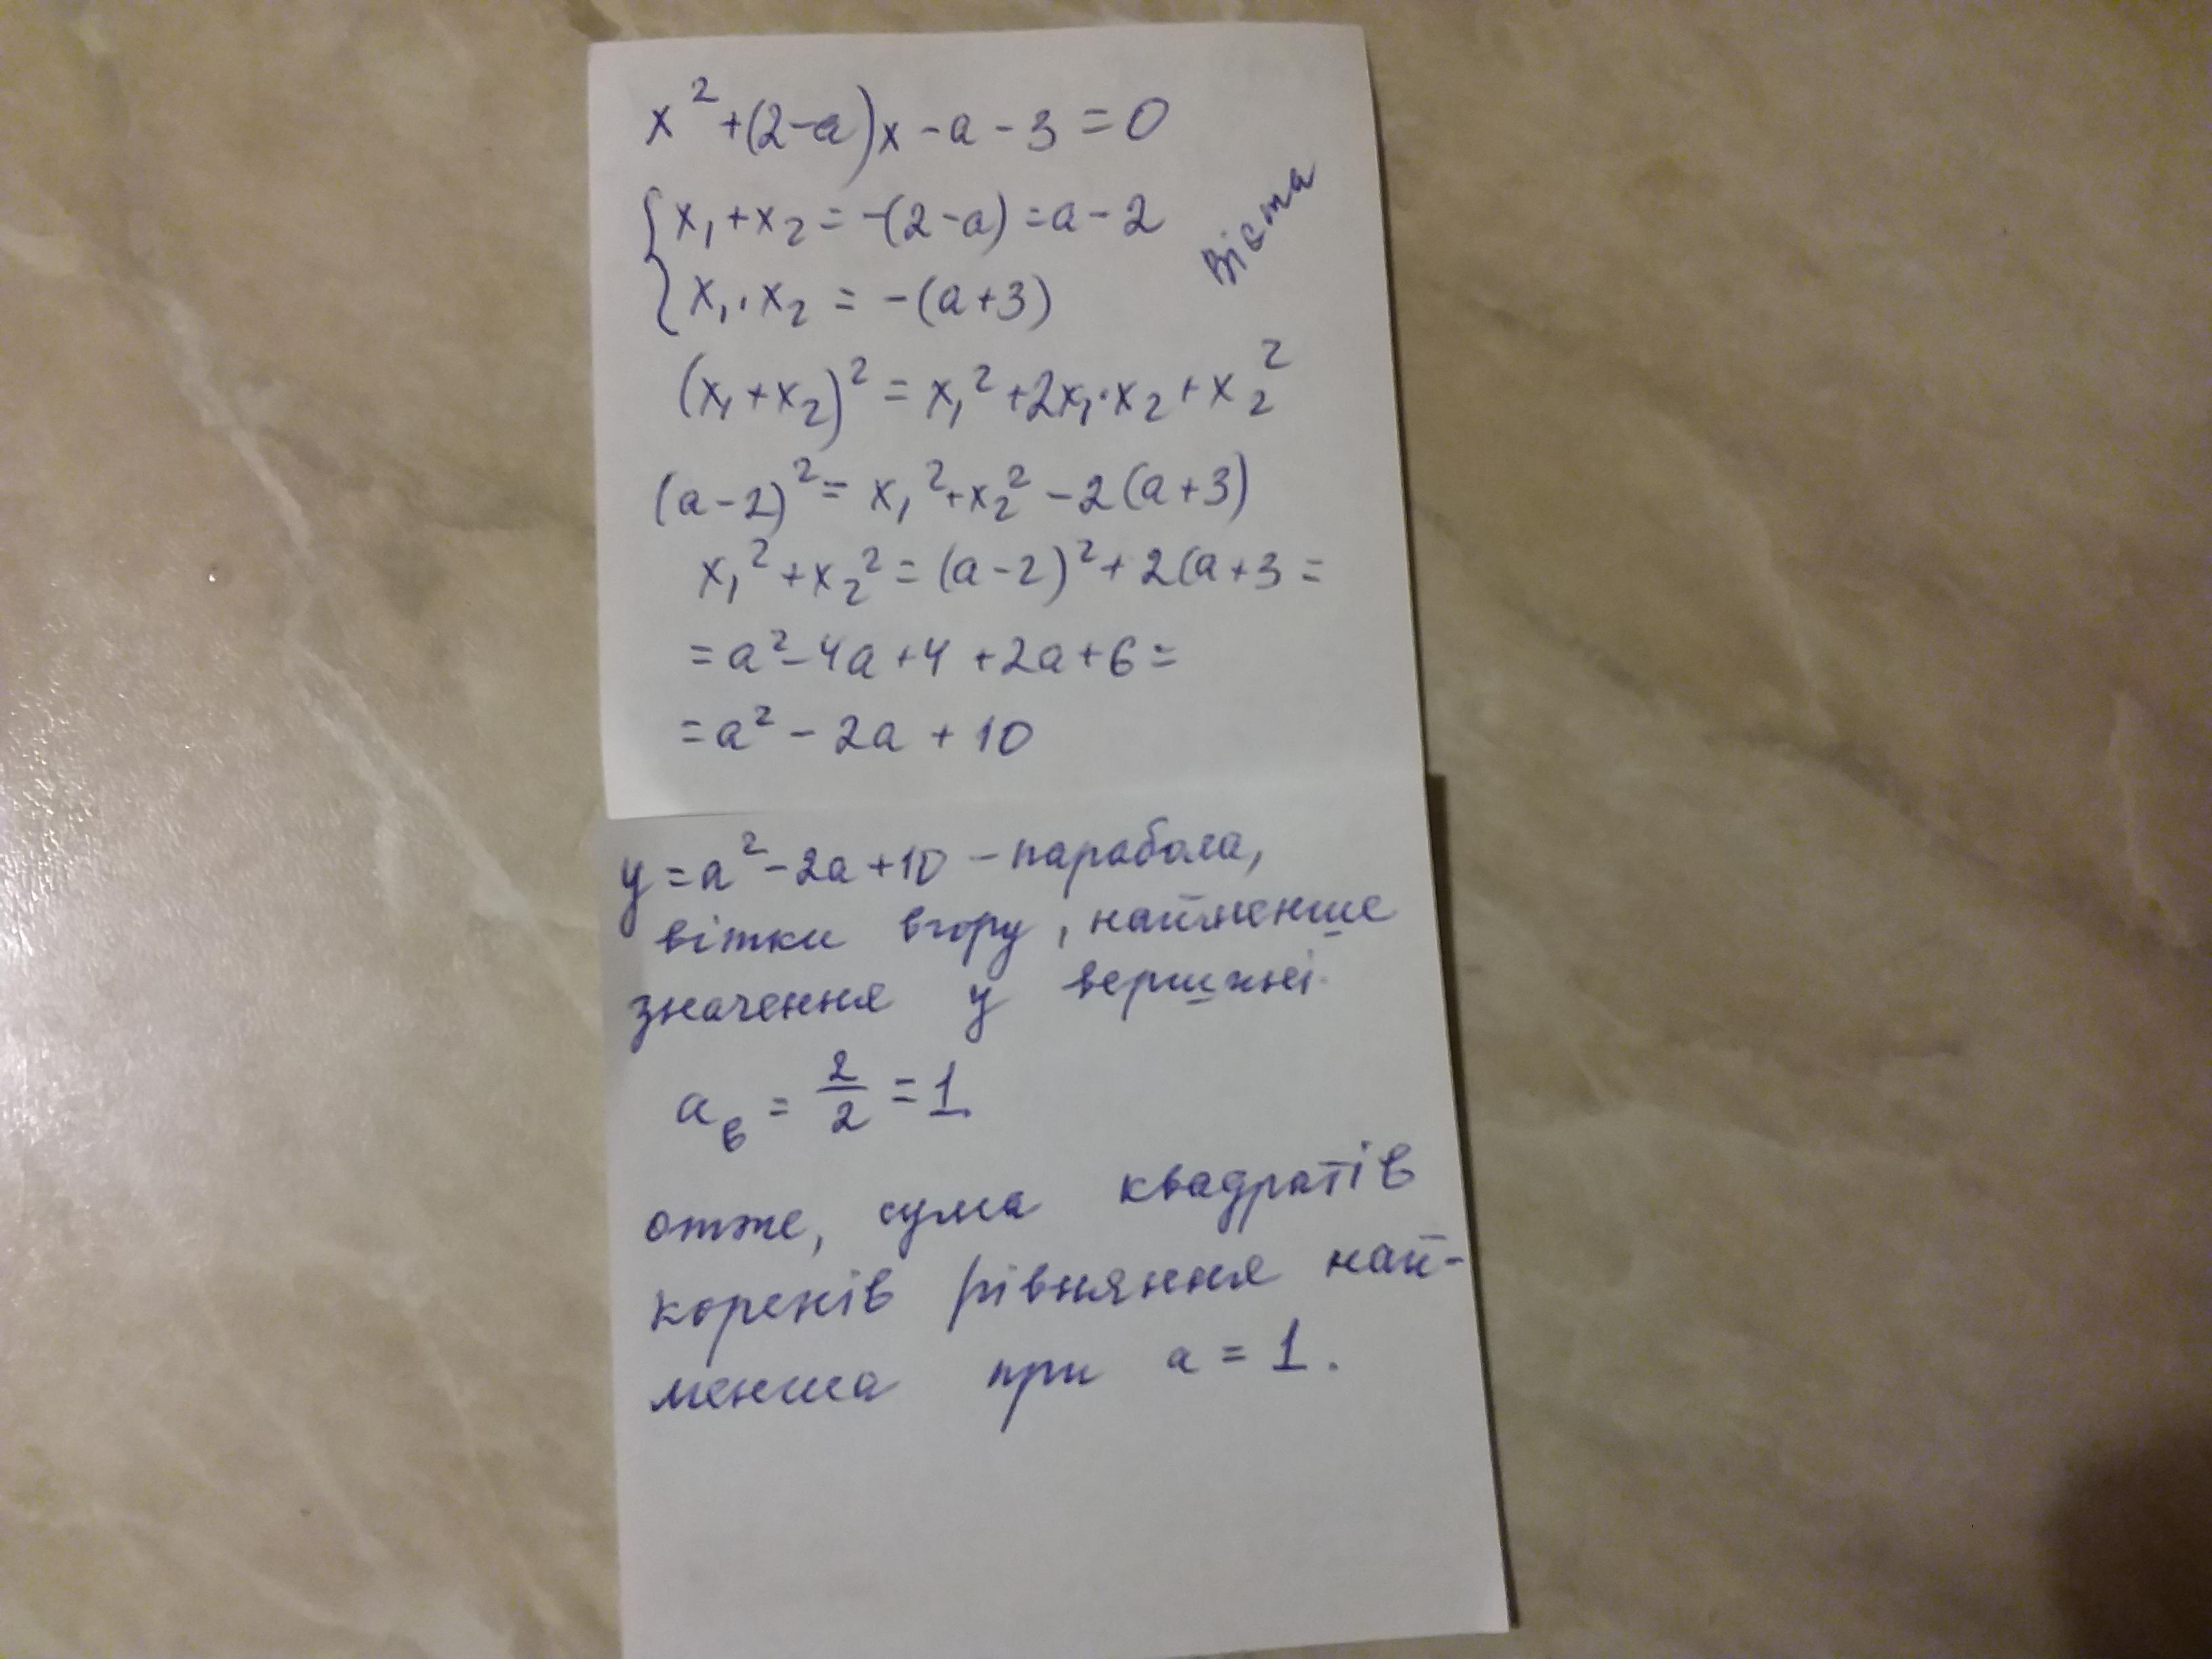 x² + (2-a)x - a - 3 = 0
{ x₁ + x₂ = -(2-a) = a - 2
x₁ · x₂ = -(a+3)
Вієта
(x₁ + x₂)² = x₁² + 2x₁·x₂ + x₂²
(a-2)² = x₁² + x₂² - 2(a+3)
x₁² + x₂² = (a-2)² + 2(a+3 =
= a² - 4a + 4 + 2a + 6 =
= a² - 2a + 10
y = a² - 2a + 10 - парабола,
вітки вгору, найменше
значення у вершині.
aв = 2/2 = 1.
отже, сума квадратів
коренів рівняння най-
менша при a = 1.